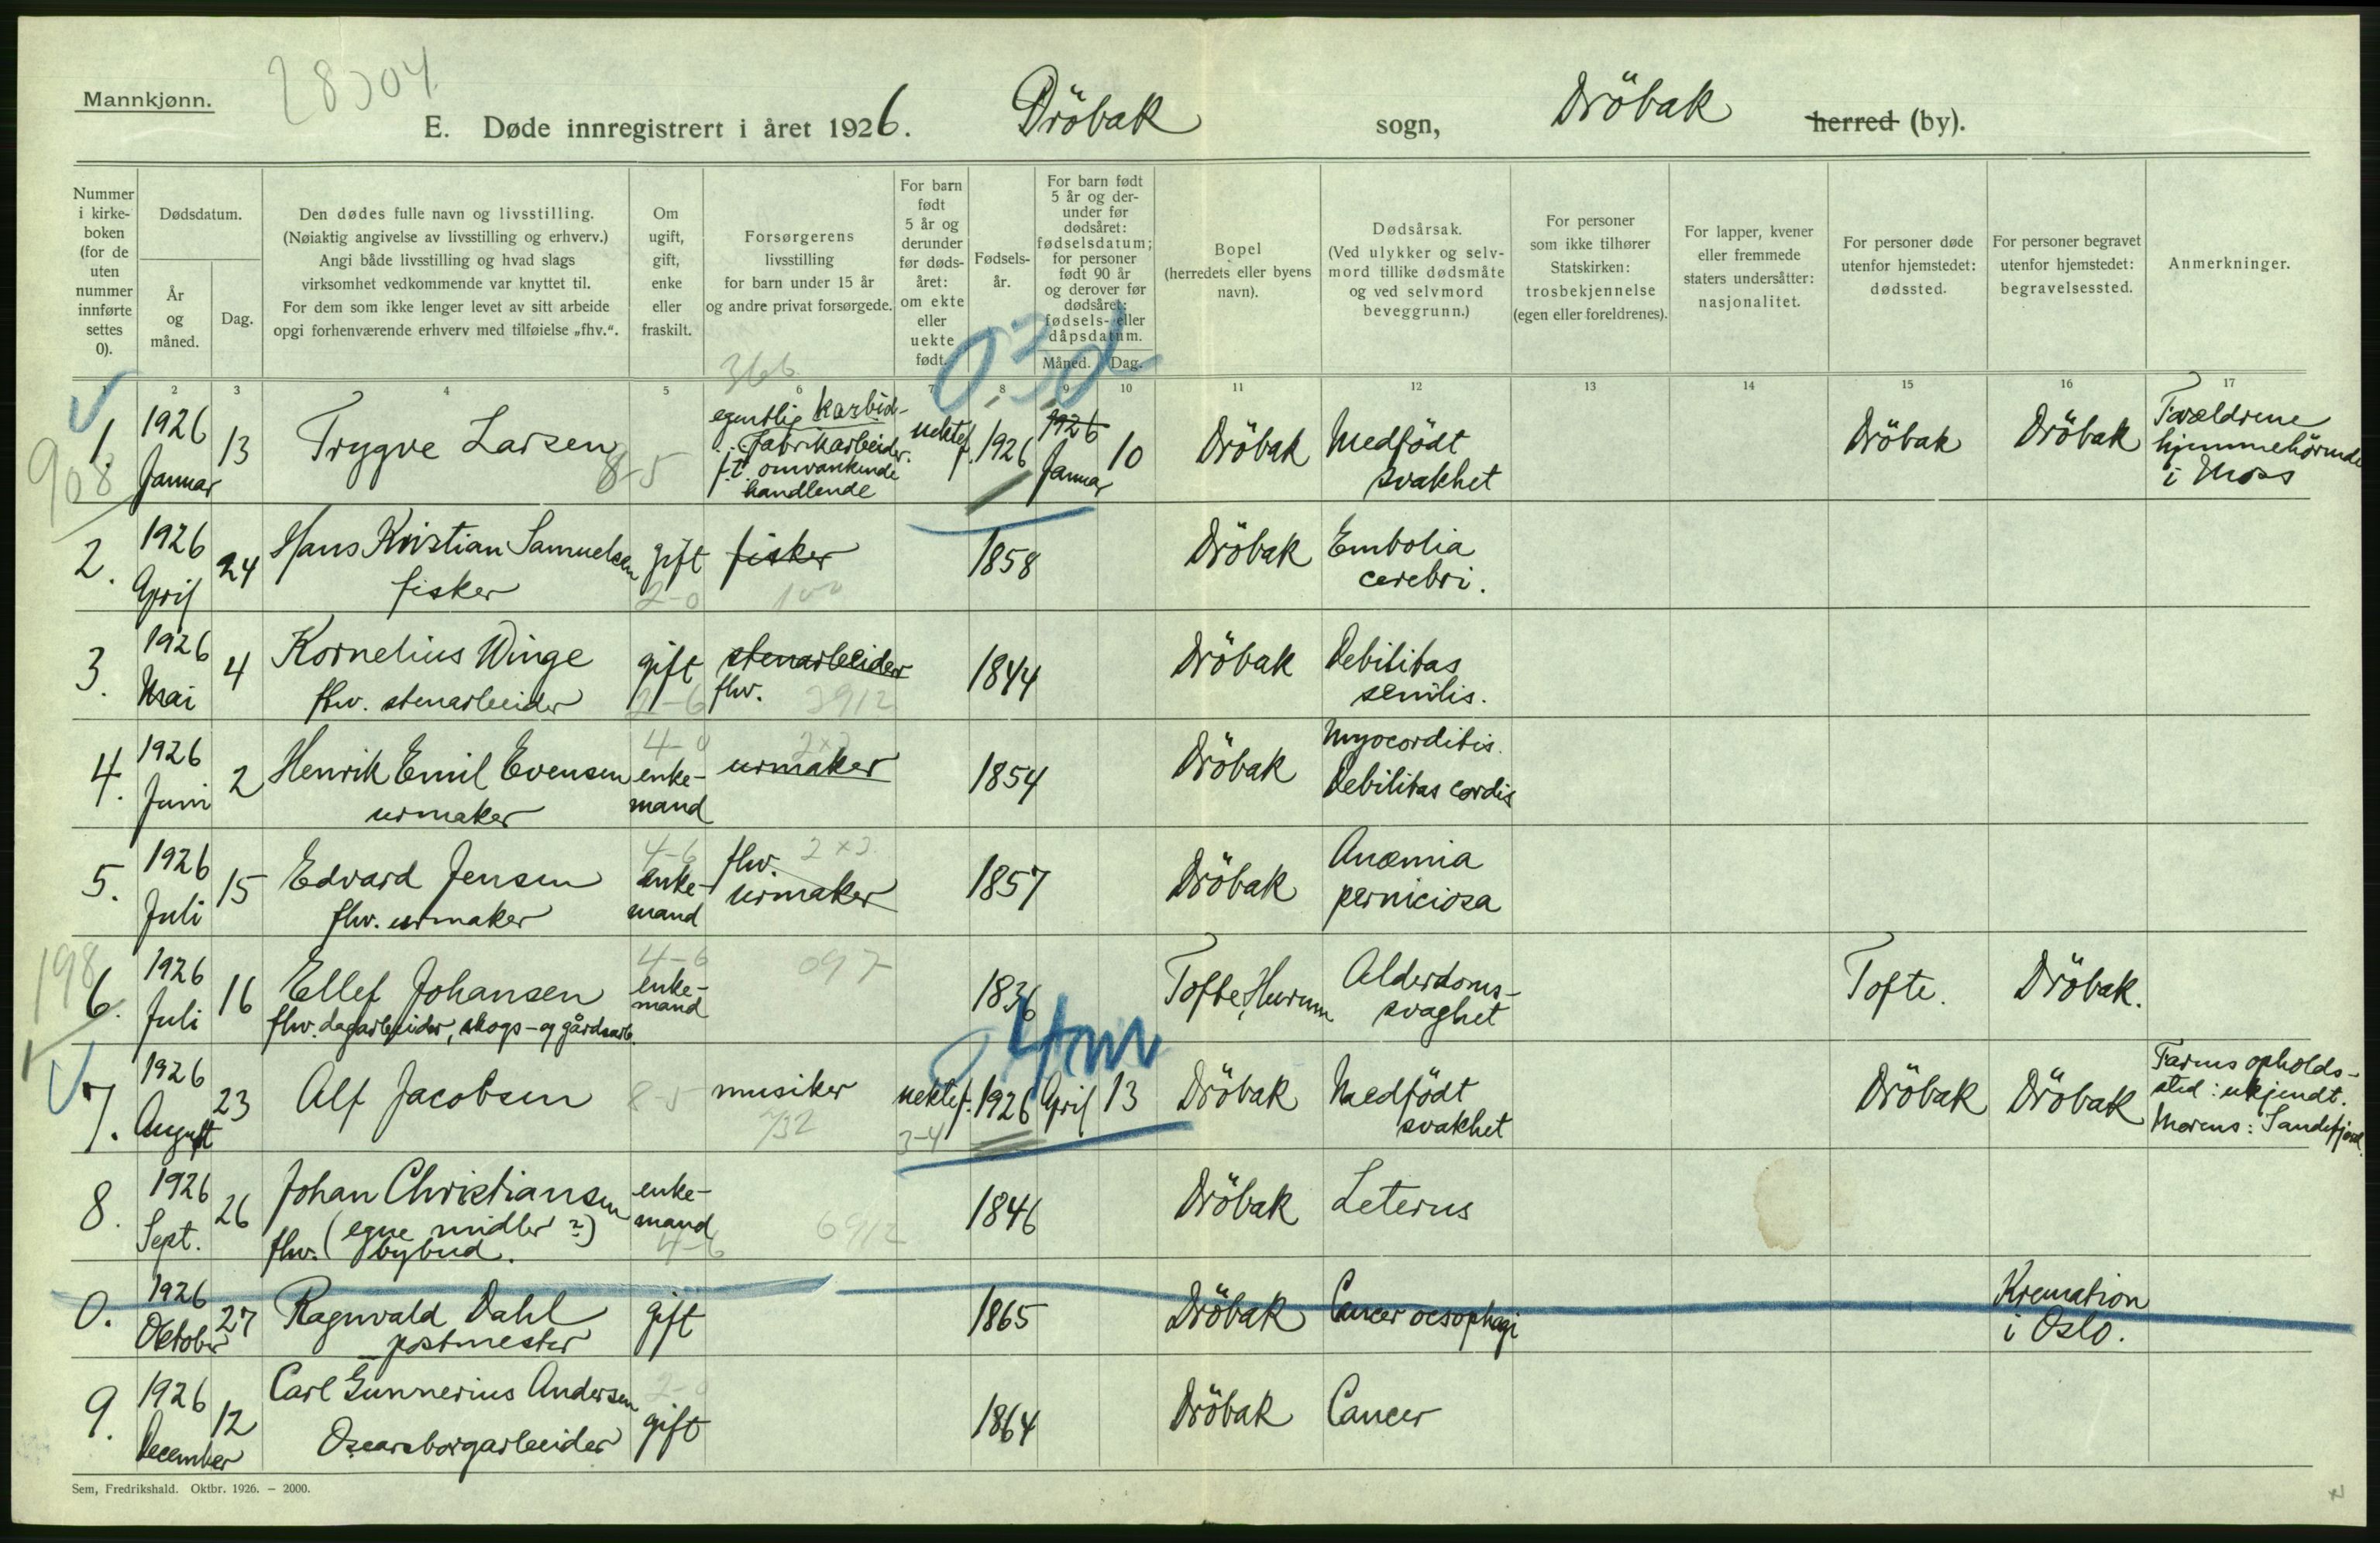 Mannkjønn.
28304.
E. Døde innregistrert i året 1926. Dröbak sogn, Dröbak herred (by).
Nummer i kirke-boken (for de uten nummer innførte settes 0).
Dødsdatum.
År og måned.
Dag.
Den dødes fulle navn og livsstilling.
(Nøiaktig angivelse av livsstilling og erhverv.)
Angi både livsstilling og hvad slags
virksomhet vedkommende var knyttet til.
For dem som ikke lenger levet av sitt arbeide
opgi forhenværende erhverv med tilføielse „fhv.“.
Om ugift, gift, enke eller fraskilt.
Forsørgerens
livsstilling
for barn under 15 år
og andre privat forsørgede.
For barn født 5 år og derunder før døds-året: om ekte eller uekte født.
Fødsels-år.
For barn født 5 år og der-under før dødsåret: fødselsdatum; for personer født 90 år og derover før dødsåret: fødsels- eller dåpsdatum.
Måned. Dag.
Bopel
(herredets eller byens
navn).
Dødsårsak.
(Ved ulykker og selv-
mord tillike dødsmåte
og ved selvmord
beveggrunn.)
For personer
som ikke tilhører
Statskirken:
trosbekjennelse
(egen eller foreldrenes).
For lapper, kvener
eller fremmede
staters undersåtter:
nasjonalitet.
For personer døde
utenfor hjemstedet:
dødssted.
For personer begravet
utenfor hjemstedet:
begravelsessted.
Anmerkninger.
366
0,3d
1 2 3 4 5 6 7 8 9 10 11 12 13 14 15 16 17
908
1. 1926 Januar 13 Trygve Larsen 8-5
egentlig karbid-
fabrikarbeider.
f.t. omvankende
handlende
uektef. 1926 1926 Januar 10 Dröbak Medfödt
svakhet
Dröbak Dröbak Forældrene
hjemmehörende
i Moss
2. 1926 April 24 Hans Kristian Samuelsen
fisker
gift fisker 1858 Dröbak Embolia
cerebri.
2-0 100
3. 1926 Mai 4 Kornelius Winge
fhv. stenarbeider
gift stenarbeider
fhv.
1844 Dröbak Debilitas
senilis.
2-6 3912
4. 1926 Juni 2 Henrik Emil Evensen
urmaker
4-0
enke-
mand
2x2
urmaker 1854 Dröbak Myocorditis.
Debilitas cordis
5. 1926 Juli 15 Edvard Jensen
fhv. urmaker
4-6
enke-
mand
fhv. 2x2
urmaker 1857 Dröbak Anæmia
perniciosa
198
6. 1926 Juli 16 Ellef Johansen
fhv. dagarbeider, skogs- og gårdsarb.
4-6
enke-
mand
097
1836 Tofte, Hurum Alderdoms-
svaghet
Tofte. Dröbak.
0,4m
7. 1926 August 23 Alf Jacobsen 8-5 musiker
732
uektef. 3-4 1926 April 13 Dröbak Medfödt
svakhet
Dröbak Dröbak Farens opholds-
sted: ukjendt.
Morens: Sandefjord.
8. 1926 Sept. 26 Johan Christiansen
(egne midler?)
fhv. bybud.
enke-
mand
4-6
6912
1846 Dröbak Icterus
0. 1926 Oktober 27 Ragnvald Dahl
postmester
gift 1865 Dröbak Cancer oesophagi
Kremation
i Oslo.
9. 1926 December 12 Carl Gunnerius Andersen
Oscarsborgarbeider
2-0
gift 1864 Dröbak Cancer
Sem, Fredrikshald. Oktbr. 1926. – 2000.